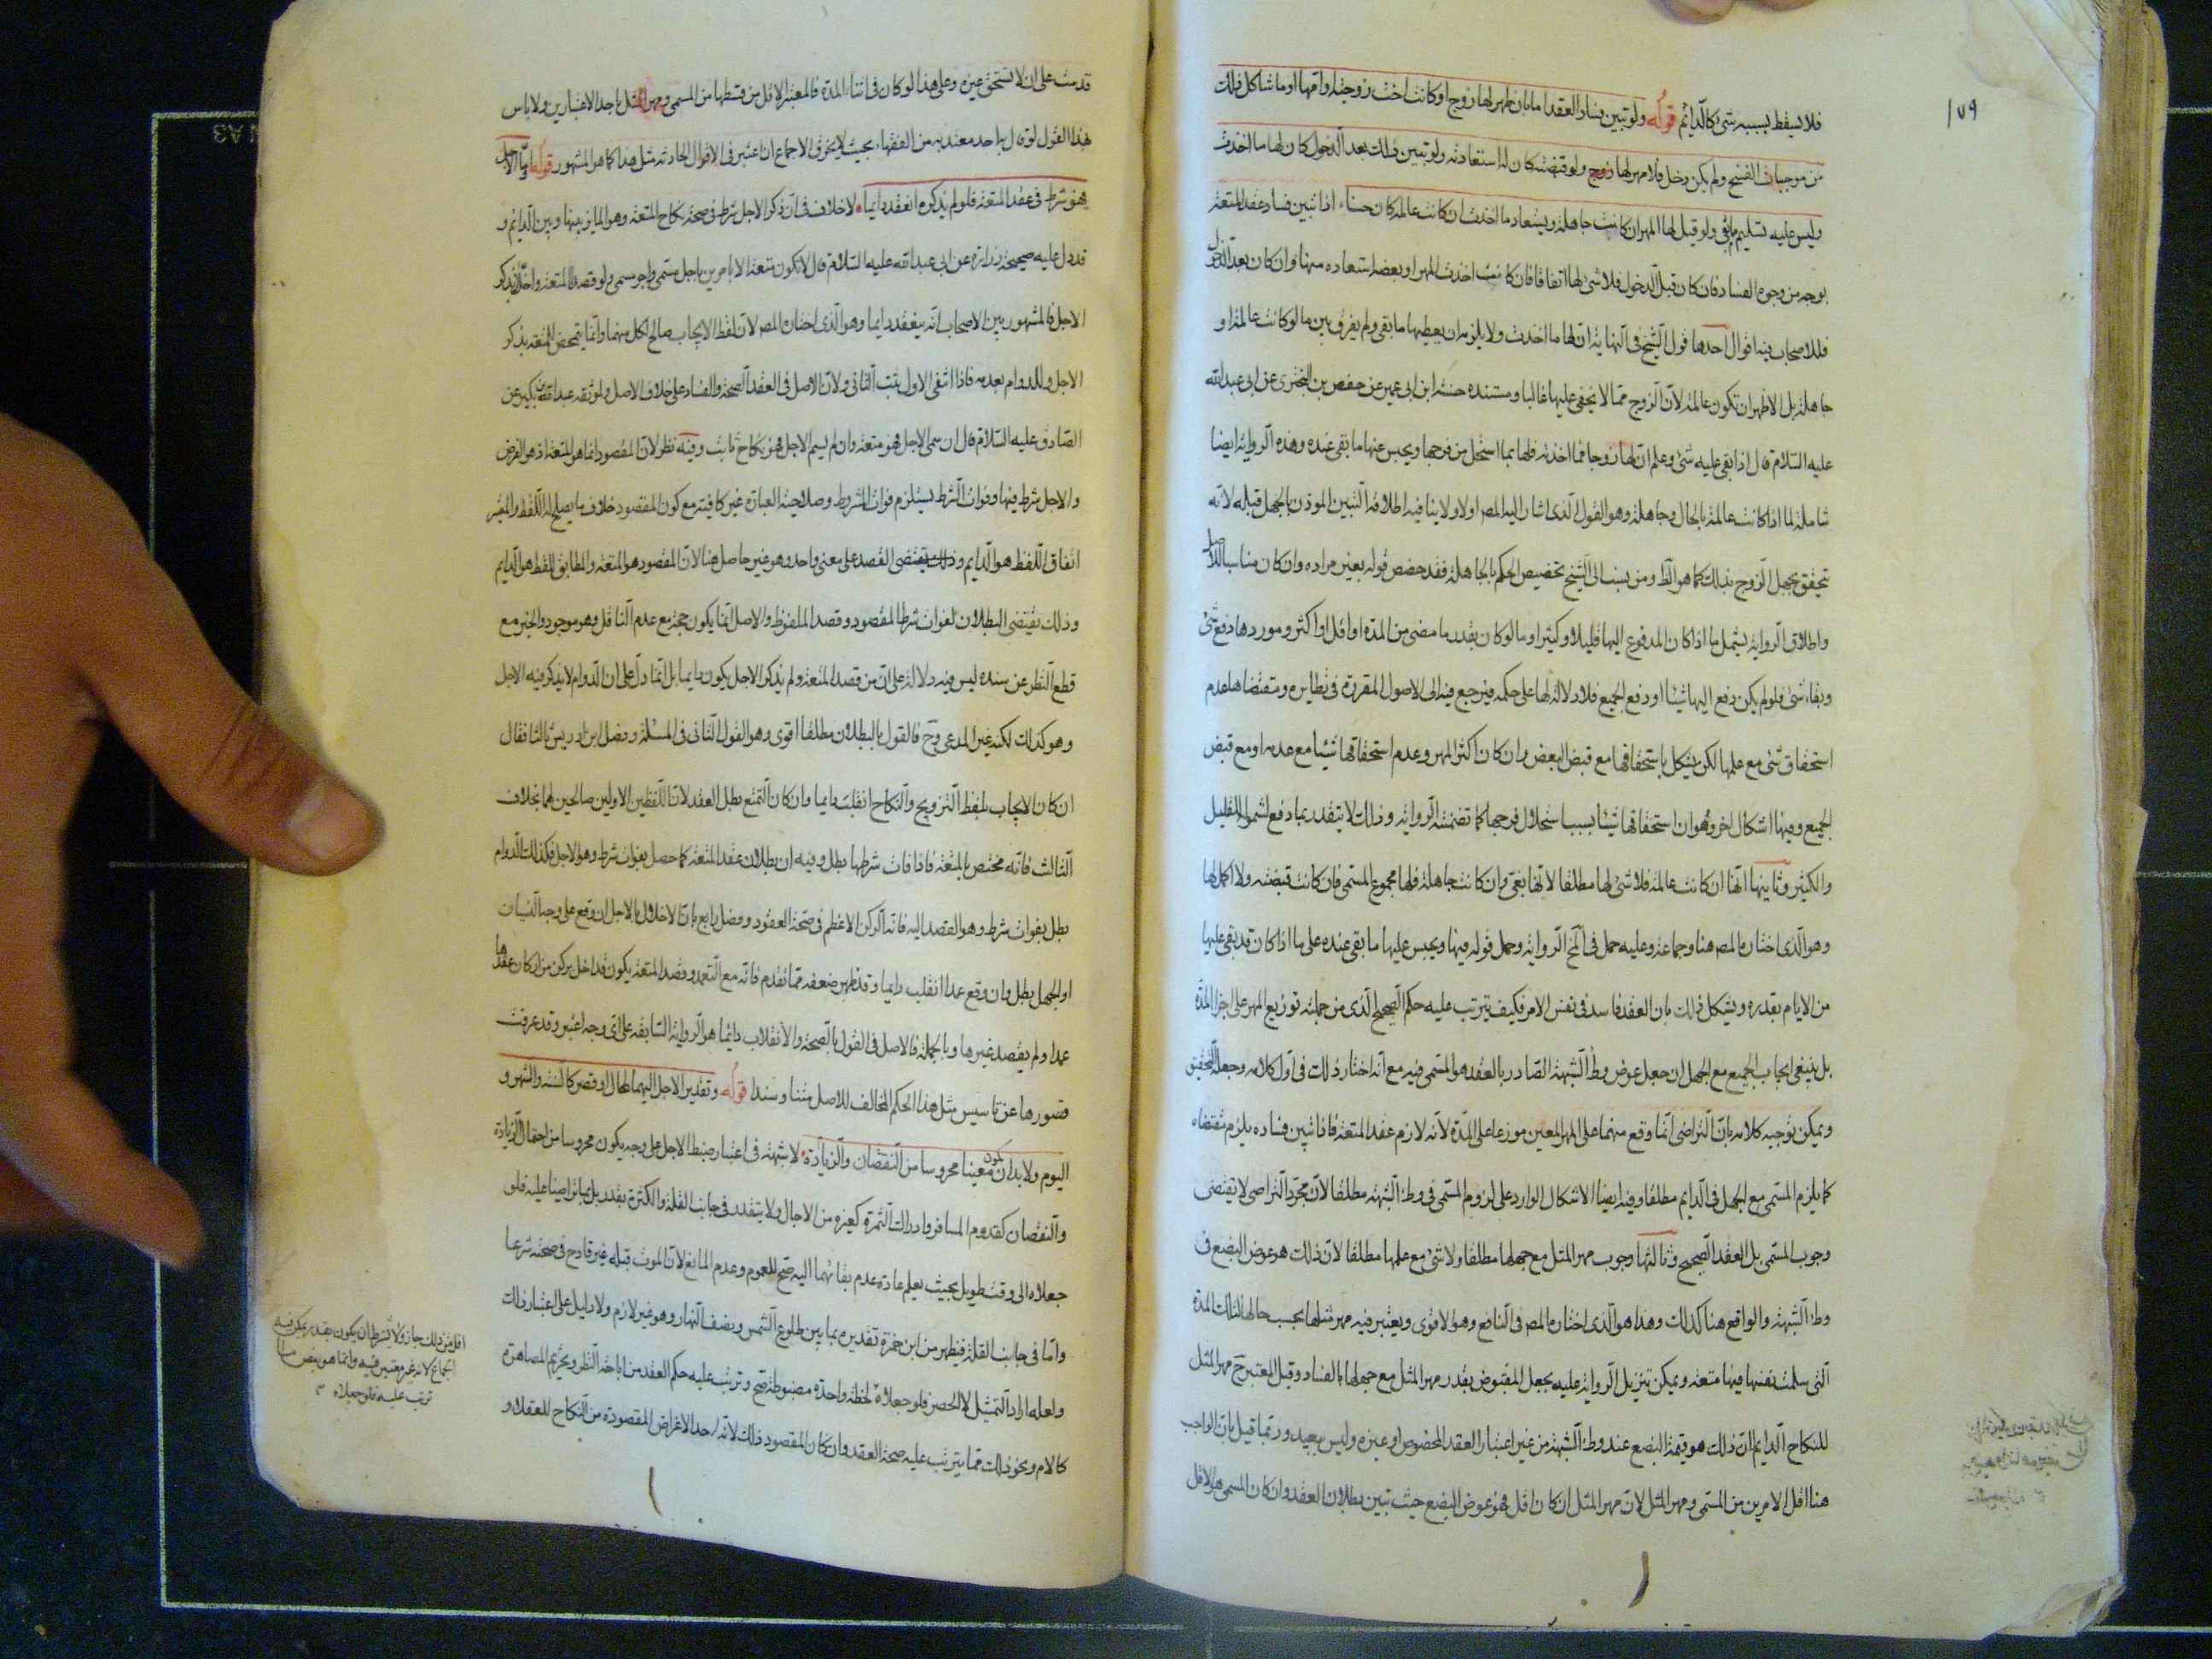 ١٧٩
فلا يسقط بسببه شئ كالدايم قوله ولو تبين فساد العقد اما بان ظهر لها زوج او كانت اخت زوجته او امها او ما شاكل ذلك
من موجبات الفسخ ولم يكن دخل فلا مهر لها ولو قبضته كان له استعادته ولو تبين ذلك بعد الدخول كان لها ما اخذت
وليس عليه تسليم ما بقى ولو قيل لها المهر ان كانت جاهلة ويستعاد ما اخذت ان كانت عالمة كان حسنا اذا تبين فساد عقد المتعة
بوجه من وجوه الفساد فان كان قبل الدخول فلا شئ لها اتفاقا فان كانت اخذت المهر او بعضه استعاده منها وان كان بعد الدخول
فللاصحاب فيه اقوال احدها قول الشيخ فى النهاية ان لها ما اخذت ولا يلزمه ان يعطيها ما بقى ولم يفرق بين ما لو كانت عالمة او
جاهلة بل الاظهر ان تكون عالمة لان الزوج مما لا يخفى عليها غالبا ومستنده حسنة ابن ابى عمير عن حفص بن البخترى عن ابى عبد الله
عليه السلام قال اذا بقى عليه شئ وعلم ان لها زوجا فما اخذته فلها بما استحل من فرجها ويحبس عنها ما بقى عنده وهذه الرواية ايضا
شاملة لما اذا كانت عالمة بالحال وجاهلة وهو القول الذى اشار اليه المص اولا ولا ينافيه اطلاقه التبين الموذن بالجهل قبله لانه
تحقق بجهل الزوج بذلك كما هو الظ ومن ينسب الى الشيخ تخصيص الحكم بالجاهلة فقد خصص قوله بغير مراده وان كان مناسبا للاصل
واطلاق الرواية يشمل ما اذا كان المدفوع اليها قليلا وكثيرا وما لو كان بقدر ما مضى من المدة او اقل او اكثر وموردها دفع شئ
وبقاء شئ فلو لم يكن دفع اليها شيئا او دفع الجميع فلا دلالة لها على حكمه فيرجع فيه الى الاصول المقررة فى نظايره ومقتضاها عدم
استحقاق شئ مع علمها لكن يشكل باستحقاقها مع قبض البعض وان كان اكثر المهر وعدم استحقاقها شيئا مع عدمه او مع قبض
الجميع وفيها اشكال اخر وهو ان استحقاقها شيئا بسبب استحلال فرجها كما تضمنته الرواية وذلك لا يتقدر بما دفع لشموله القليل
والكثير وثانيها انها ان كانت عالمة فلا شئ لها مطلقا لانها بغى وان كانت جاهلة فلها مجموع المسمى فان كانت قبضته والا اكمل لها
وهو الذى اختاره المص هنا وجماعة وعليه حمل فى الخ الرواية وحمل قوله فيها ويحبس عليها ما بقى عنده على ما اذا كان قد بقى عليها
من الايام بقدره ويشكل ذلك بان العقد فاسد فى نفس الامر فكيف يترتب عليه حكم الصحيح الذى من جملته توزيع المهر على اجزاء المدة
بل ينبغى ايجاب الجميع مع الجهل ان جعل عوض وطء الشبهة الصادر بالعقد هو المسمى فيه مع انه اختار ذلك فى اول كلامه وجعله التحقيق
ويمكن توجيه كلامه بان التراضى انما وقع منهما على المهر المعين موزعا على المدة لانه لازم عقد المتعة فاذا تبين فساده يلزم مقتضاه
كما يلزم المسمى مع الجهل فى الدايم مطلقا وفيه ايضا الاشكال الوارد على لزوم المسمى فى وطء الشبهة مطلقا لان مجرد التراضى لا يقتضى
وجوب المسمى بل العقد الصحيح وثالثها وجوب مهر المثل مع جهلها مطلقا ولا شئ مع علمها مطلقا لان ذلك هو عوض البضع فى
وطء الشبهة والواقع هنا كذلك وهذا هو الذى اختاره المص فى النافع وهو الاقوى ويعتبر فيه مهر مثلها بحسب حالها لتلك المدة
التى سلمت نفسها فيها متعة ويمكن تنزيل الرواية عليه بجعل المقبوض بقدر مهر المثل مع جهلها بالفساد وقيل المعتبر ح مهر المثل
للنكاح الدايم لان ذلك هو قيمة البضع عند وطء الشبهة من غير اعتبار العقد المخصوص او غيره وليس ببعيد وربما قيل بان الواجب
هنا اقل الامرين من المسمى ومهر المثل لان مهر المثل ان كان اقل فهو عوض البضع حيث تبين بطلان العقد وان كان المسمى هو الاقل
قدمت على ان لا تستحق غيره وعلى هذا لو كان فى اثناء المدة فالمعتبر الاقل من قسطها من المسمى ومهر المثل باحد الاعتبارين ولا باس
بهذا القول لو قال به احد معتد به من الفقهاء بحيث لا يخرق الاجماع ان اعتبر فى الاقوال الحادثة مثل هذا كما هو المشهور قوله واما الاجل
فهو شرط فى عقد المتعة فلو لم يذكره انعقد دايما لا خلاف فى ان ذكر الاجل شرط فى صحة نكاح المتعة وهو المايز بينها وبين الدايم و
قد دل عليه صحيحة زرارة عن ابى عبد الله عليه السلام قال لا تكون متعة الا بامرين باجل مسمى واجر مسمى ولو قصدا المتعة واخلا بذكر
الاجل فالمشهور بين الاصحاب انه ينعقد دايما وهو الذى اختاره المص لان لفظ الايجاب صالح لكل منهما وانما يتمحض للمتعة بذكر
الاجل وللدوام بعدمه فاذا انتفى الاول ثبت الثانى ولان الاصل فى العقد الصحة والفساد على خلاف الاصل ولموثقة عبد الله بن بكير عن
الصادق عليه السلام قال ان سمى الاجل فهو متعة وان لم يسم الاجل فهو نكاح ثابت وفيه نظر لان المقصود انما هو المتعة اذ هو الفرض
والاجل شرط فيها وفوات الشرط يستلزم فوات المشروط وصلاحية العبارة غير كافية مع كون المقصود خلاف ما يصلح له اللفظ والمعتبر
اتفاق اللفظ هو الدايم وذلك يقتضى القصد على معنى واحد وهو غير حاصل هنا لان المقصود هو المتعة والمطابق للفظ هو الدايم
وذلك يقتضى البطلان لفوات شرط المقصود وقصد الملفوظ والاصل انما يكون حجة مع عدم الناقل وهو موجود والخبر مع
قطع النظر عن سنده ليس فيه دلالة على ان من قصد المتعة ولم يذكر الاجل يكون دايما بل انما دل على ان الدوام لا يذكر فيه الاجل
وهو كذلك لكنه غير المدعى وح فالقول بالبطلان مطلقا اقوى وهو القول الثانى فى المسئلة وفصل ابن ادريس ثالثا فقال
ان كان الايجاب بلفظ التزويج والنكاح انقلب دايما وان كان التمتع بطل العقد لان اللفظين الاولين صالحين لهما بخلاف
الثالث فانه مختص بالمتعة فاذا فات شرطها بطل وفيه ان بطلان عقد المتعة كما حصل بفوات شرط وهو الاجل فكذلك الدوام
بطل بفوات شرط وهو القصد اليه فانه الركن الاعظم فى صحة العقود وفصل رابع بان الاخلال بالاجل ان وقع على وجه النسيان
او الجهل بطل وان وقع عمدا انقلب دايما وقد ظهر ضعفه مما تقدم فانه مع التعمد وقصد المتعة يكون قد اخل بركن من اركان عقدها
عمدا ولم يقصد غيرها وبالجملة فالاصل فى القول بالصحة والانقلاب دايما هو الرواية السابقة على اى وجه اعتبر وقد عرفت
قصورها عن تاسيس مثل هذا الحكم المخالف للاصل متنا وسندا قوله وتقدير الاجل اليهما طال او قصر كالسنة والشهر و
اليوم ولا بد ان يكون معينا محروسا من النقصان والزيادة لا شبهة فى اعتبار ضبط الاجل على وجه يكون محروسا من احتمال الزيادة
والنقصان كقدوم المسافر وادراك الثمرة كغيره من الاجال ولا يتقدر فى جانب القلة والكثرة بقدر بل بما تراضيا عليه فلو
جعلاه الى وقت طويل بحيث يعلم عادة عدم بقائهما اليه صح للعموم وعدم المانع لان الموت قبله غير قادح فى صحته شرعا
واما فى جانب القلة فيظهر من ابن حمزة تقديره بما بين طلوع الشمس ونصف النهار وهو غير لازم ولا دليل على اعتبار ذلك
ولعله اراد التمثيل لا الحصر فلو جعلاه لحظة واحدة مضبوطة صح وترتب عليه حكم العقد من اباحة النظر وتحريم المصاهرة
كالام ونحو ذلك مما يترتب عليه صحة العقد وان كان المقصود ذلك لانه احد الاغراض المقصودة من النكاح للعقلاء و
اقل من ذلك جاز ولا يشترط ان يكون بقدر يمكن فيه
الجماع لانه غير معتبر فيه وانما هو بعض ما
ترتب عليه فلو جعلاه